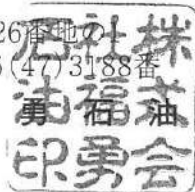 26番地の
6(47)3188番
勇 石 油
株式会
社福勇
石油印